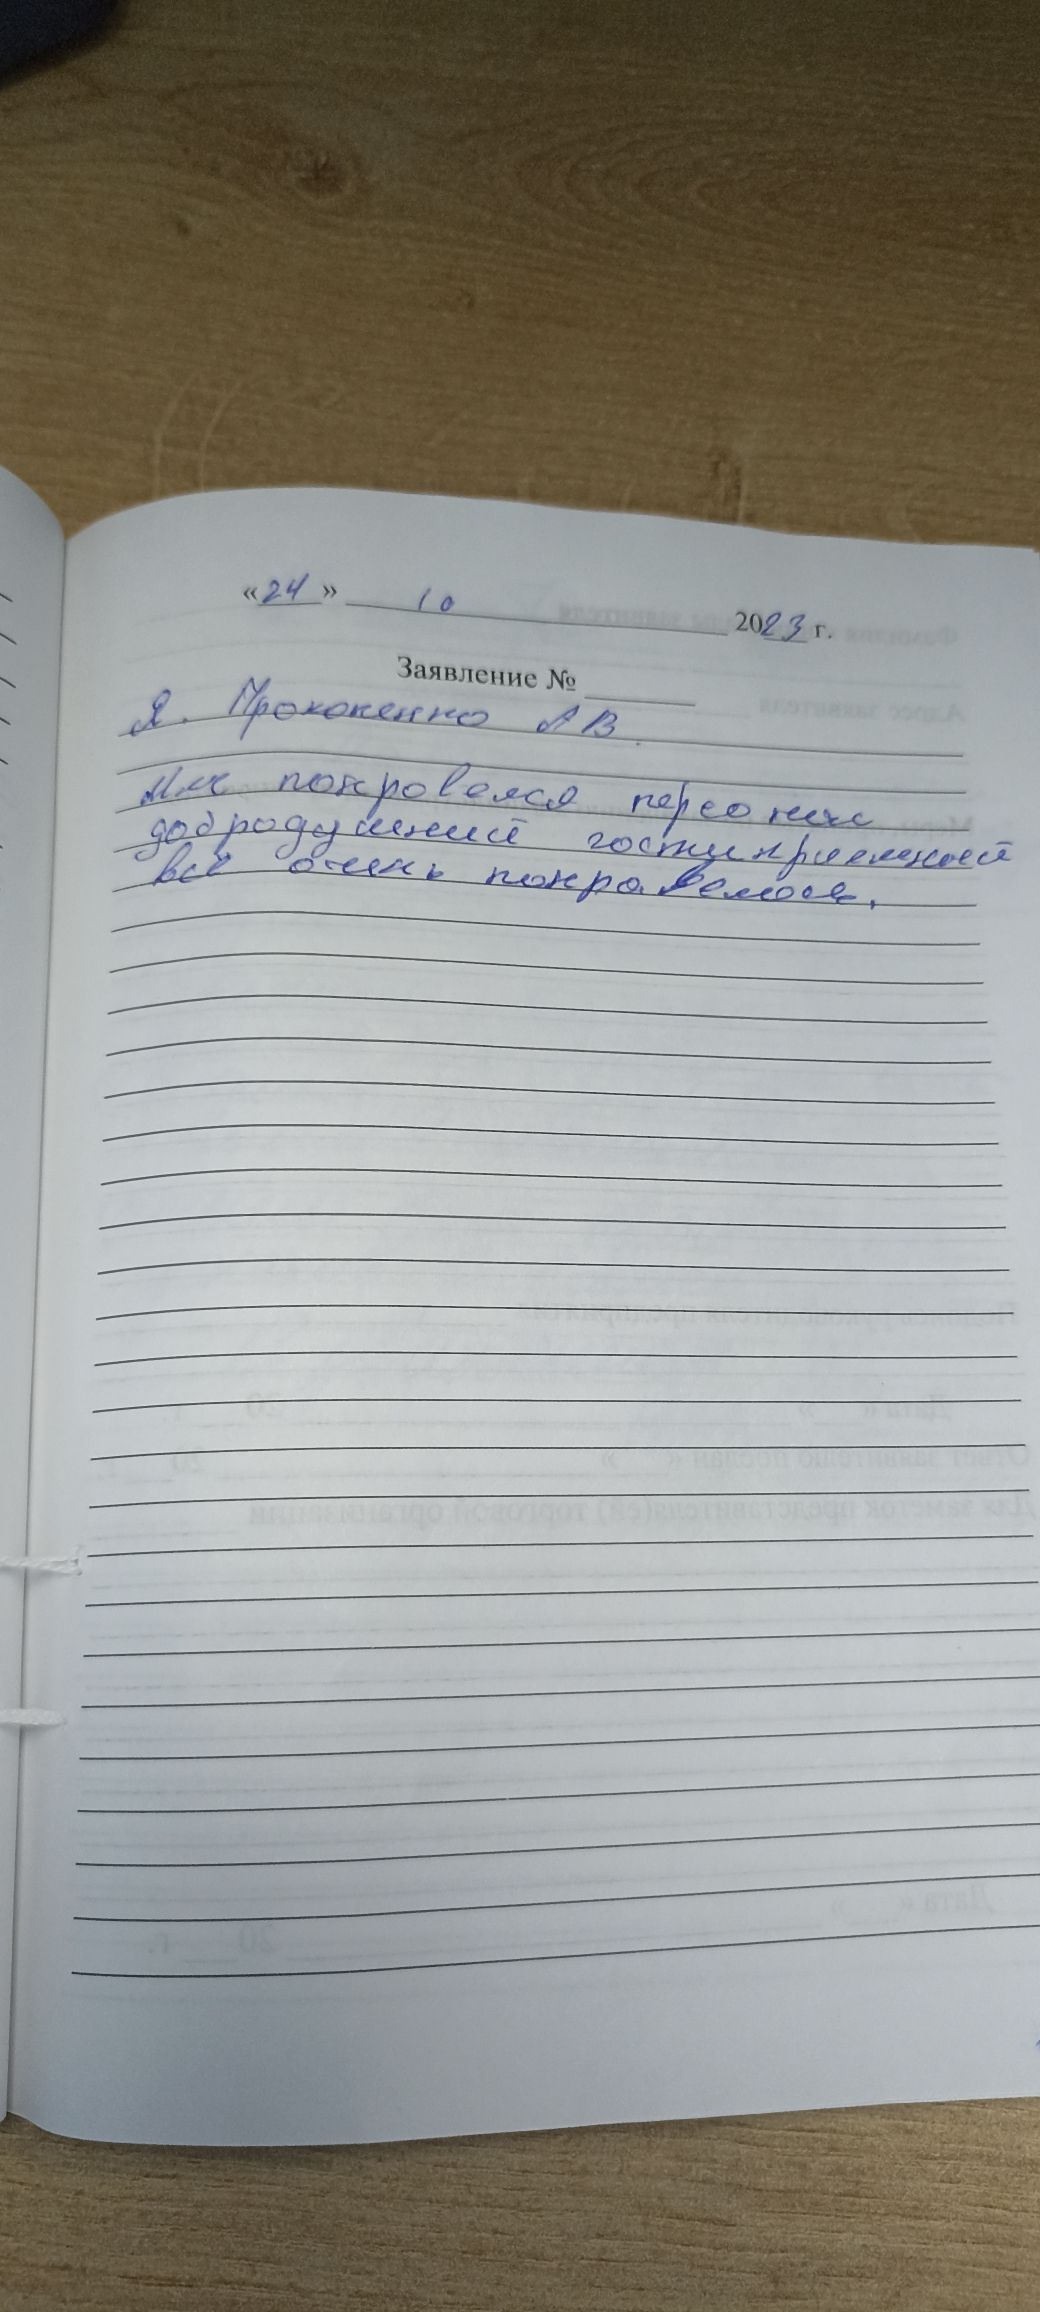 «24» 10 2023 г.
Заявление №
Я. Прокопенко А В.
Мне понкровелся персонал
добродушний гостиприемний
всё очень понкравелось.